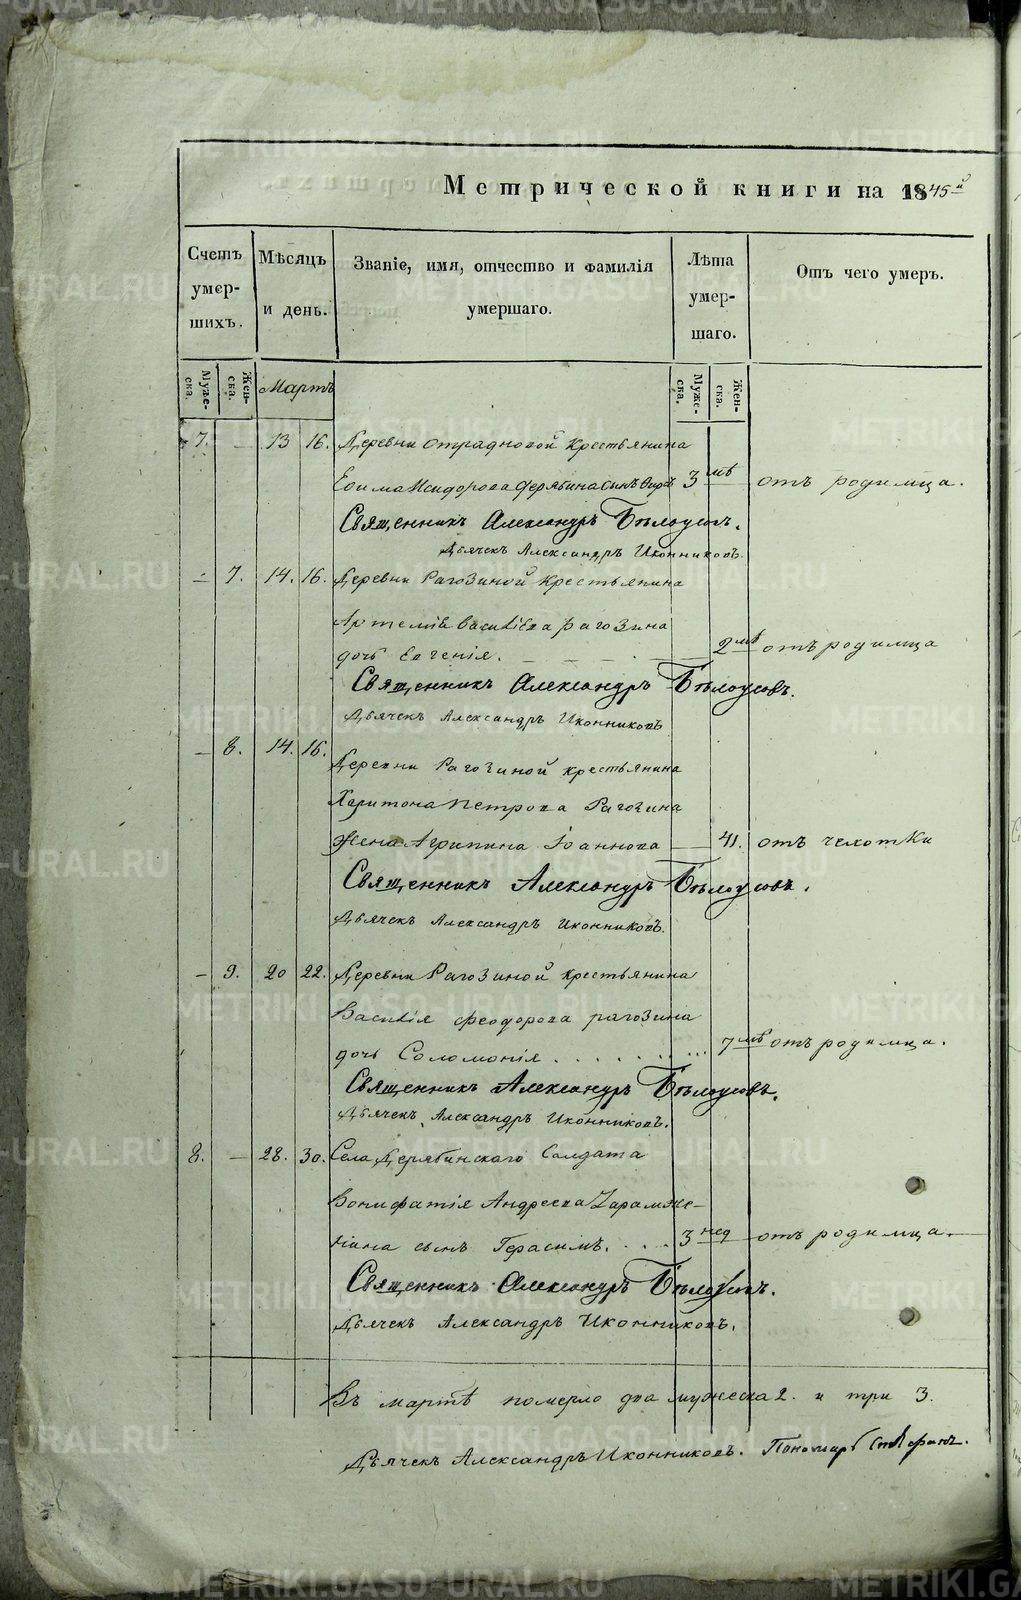 Метрической книги на 1845й
Счетъ умер-шихъ.
Мѣсяцъ и день.
Званіе, имя, отчество и фамилія умершаго.
Лѣта умер-шаго.
Отъ чего умеръ.
Муже-ска.
Жен-ска.
Мартъ
Муже-ска.
Жен-ска.
7. — 13 16. Деревни Отрадновой крестьянина
Ефима Исидорова Дерябина сынъ 3 мѣ отъ родимца.
Священникъ Александръ Бѣлоусовъ.
Дьячекъ Александръ Иконниковъ.
— 7. 14. 16. Деревни Рагозиной крестьянина
Артемія Васильева Рагозина
дочь Евгенія. 2 мѣ отъ родимца
Священникъ Александръ Бѣлоусовъ.
Дьячекъ Александръ Иконниковъ
— 8. 14. 16.
Деревни Рагозиной крестьянина
Харитона Петрова Рагозина
жена Агрипина Іоаннова — 41. отъ чехотки
Священникъ Александръ Бѣлоусовъ.
Дьячекъ Александръ Иконниковъ.
— 9. 20 22. Деревни Рагозиной крестьянина
Василія Феодорова Рагозина
дочь Соломонія . . . . . . . . . 7 мѣ отъ родимца.
Священникъ Александръ Бѣлоусовъ.
Дьячекъ Александръ Иконниковъ.
8. — 28. 30. Села Дерябинскаго Солдата
Вонифатія Андреева
сынъ Герасимъ. . . . 3 нед отъ родимца.
Священникъ Александръ Бѣлоусовъ.
Дьячекъ Александръ Иконниковъ.
Въ мартѣ померло два мужеска 2. и три 3.
Дьячекъ Александръ Иконниковъ. Пономарь
METRIKI.GASO-URAL.RU